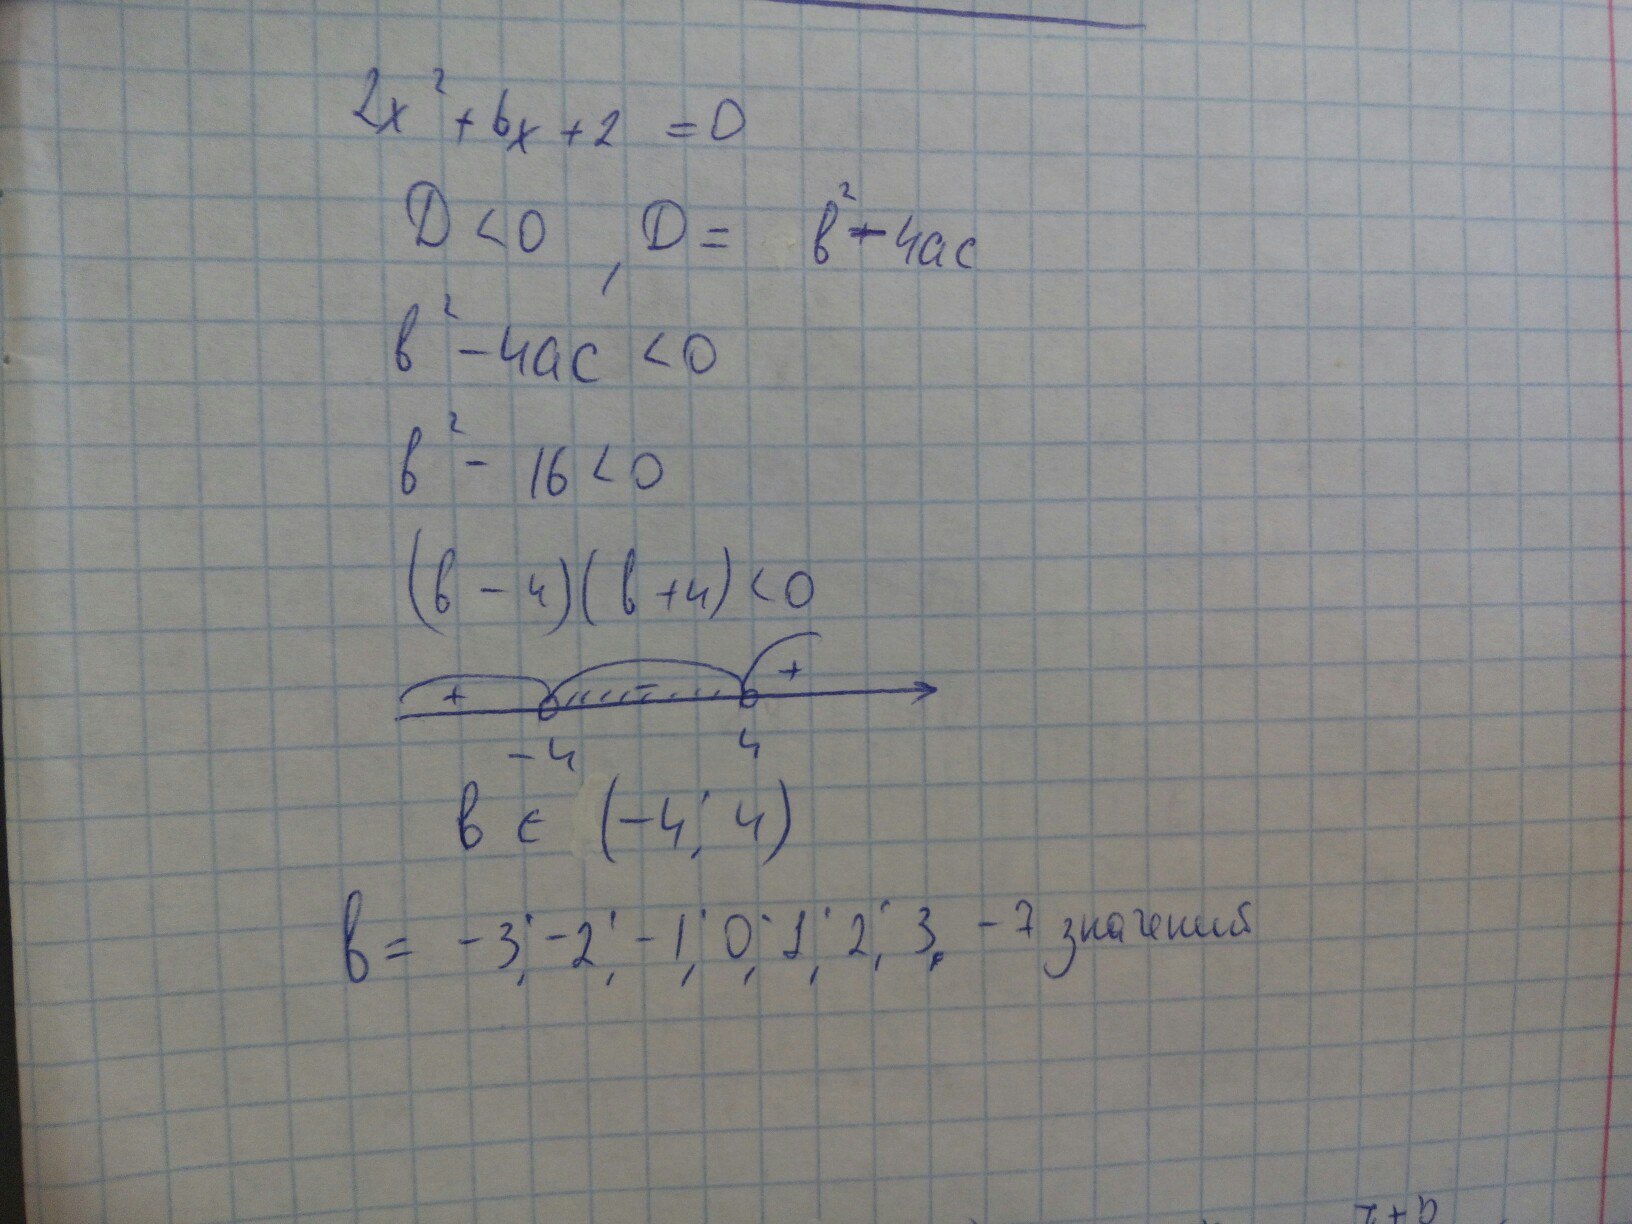 2x² + bx + 2 = 0
D < 0 , D = b² - 4ac
b² - 4ac < 0
b² - 16 < 0
(b - 4)(b + 4) < 0
+ - +
-4 4
b ∈ (-4; 4)
b = -3; -2; -1; 0; 1; 2; 3, - 7 значений